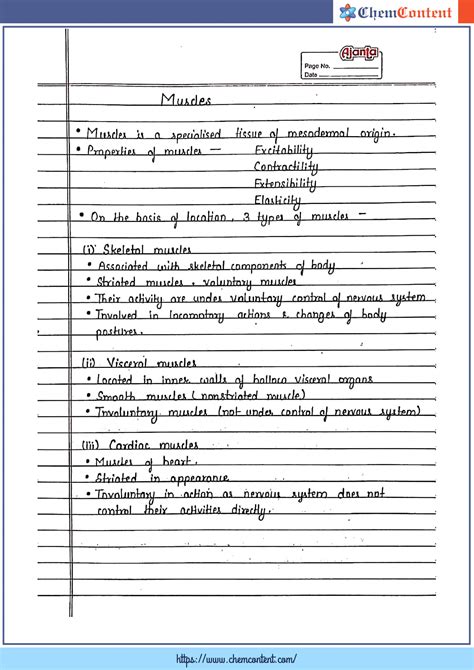 ChemContent
Ajanta
Page No.
Date
Muscles
• Muscles is a specialised tissue of mesodermal origin.
• Properties of muscles — Excitability
Contractility
Extensibility
Elasticity
• On the basis of location, 3 types of muscles —
(i) Skeletal muscles
• Associated with skeletal components of body
• Striated muscles, voluntary muscles
• Their activity are under voluntary control of nervous system
• Involved in locomotary actions & changes of body
postures.
(ii) Visceral muscles
• Located in inner walls of hollow visceral organs
• Smooth muscles (nonstriated muscle)
• Involuntary muscles (not under control of nervous system)
(iii) Cardiac muscles
• Muscles of heart.
• Striated in appearance
• Involuntary in action as nervous system does not
control their activities directly.
https://www.chemcontent.com/